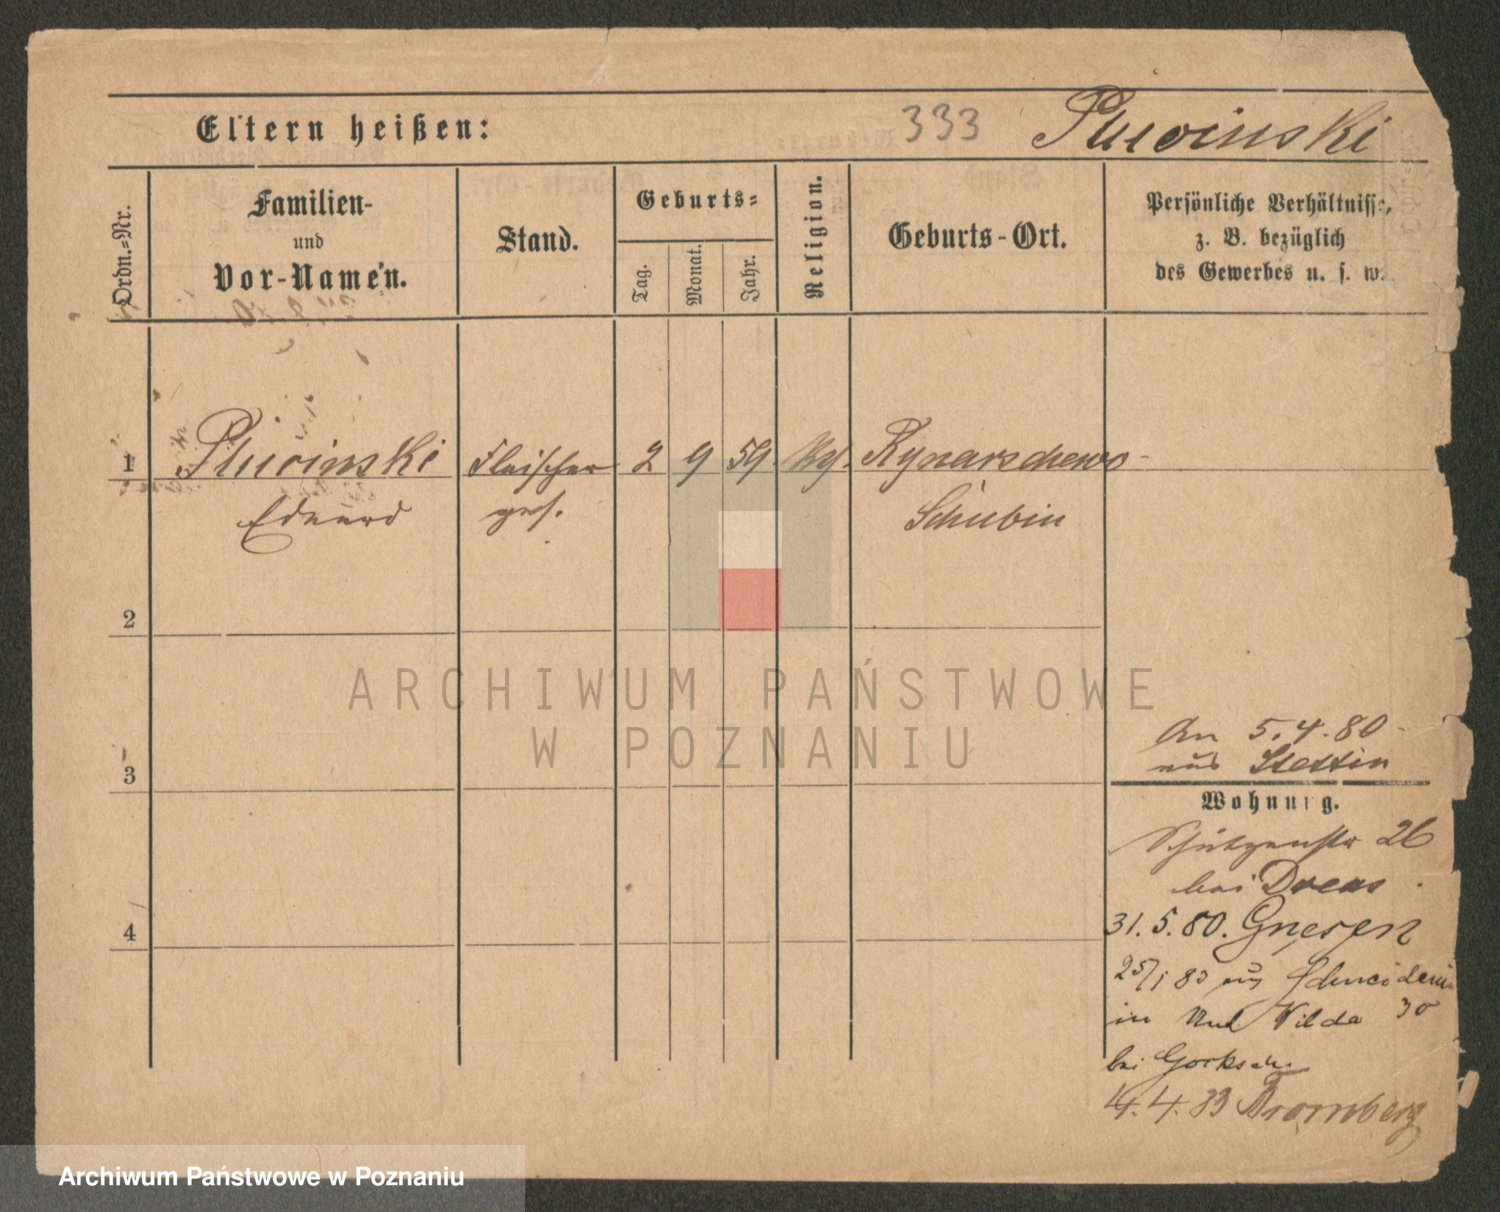 Eltern heißen: 333 Plucinski
Ordn.=Nr.
Familien-
und
Vor-Namen.
Stand.
Geburts=
Tag.
Monat.
Jahr.
Religion.
Geburts-Ort.
Persönliche Verhältnisse,
z. B. bezüglich
des Gewerbes u. s. w.
1 Plucinski Fleischer 2 9 59 Rynarschewo
Eduard ges. Schubin
2
ARCHIWUM PAŃSTWOWE
W POZNANIU
3
An 5.4.80
aus Stettin
Wohnung.
Schützenstr 26
bei
31.5.80. Gnesen
25/1 83 aus
in Wilda 30
bei
4
4.4.83 Bromberg
Archiwum Państwowe w Poznaniu